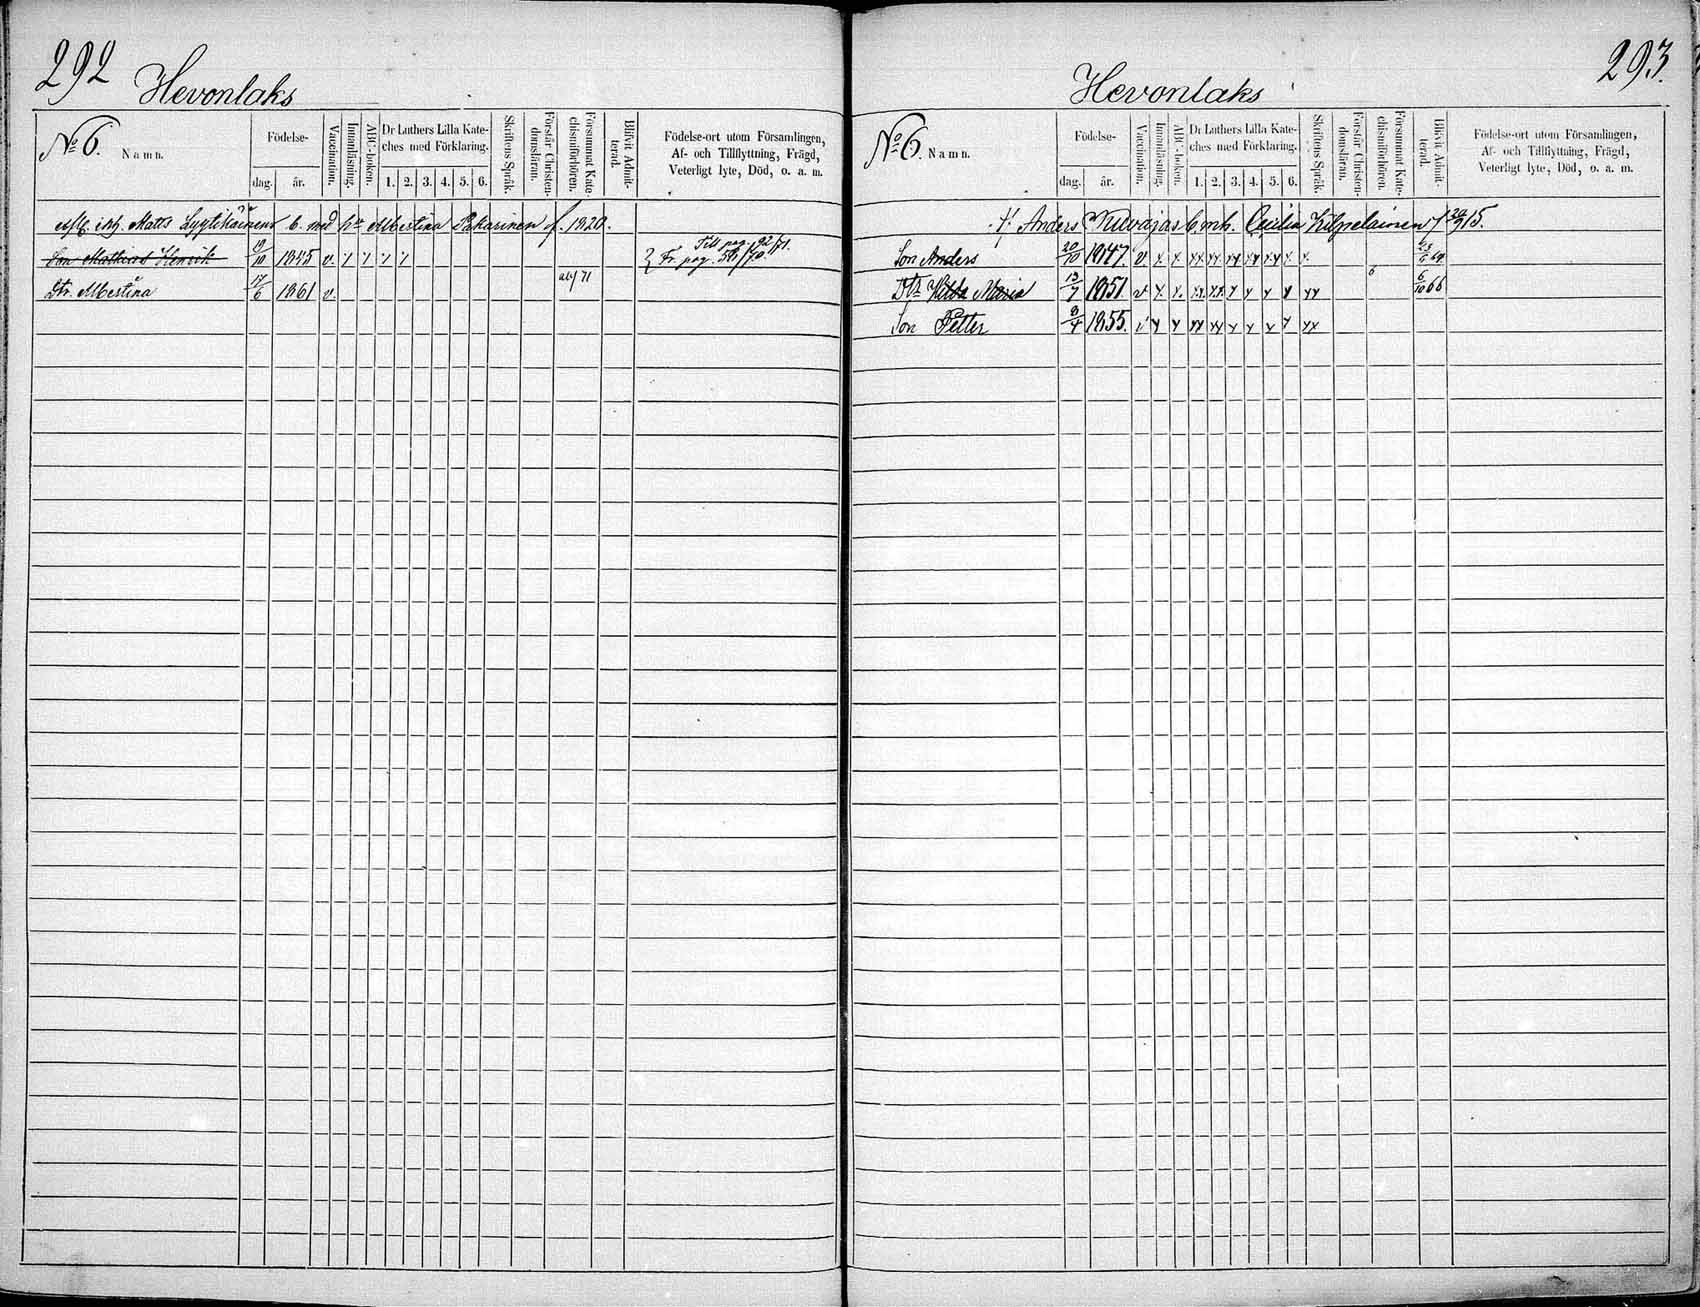 292
Hevonlaks
No 6.
Namn.
Födelse-
dag.
år.
Vaccination.
Innanläsning.
ABC-boken.
Dr Luthers Lilla Kate-
ches med Förklaring.
1. 2. 3. 4. 5. 6.
Skriftens Språk.
Förstår Christen-
domsläran.
Försummat Kate-
chismiförhören.
Blifvit Admit-
terad.
Födelse-ort utom Församlingen,
Af- och Tillflyttning, Frägd,
Veterligt lyte, Död, o. a. m.
Matts Lyytikäinens b. med Albertina Pakarinen f. 1820.
Till pag. 92/71.
Son Mathias Henrik 19/10 1845 v. Fr. pag. 58/70
Dtr. Albertina 17/6 1861 v. 71
293.
Hevonlaks
No 6.
Namn.
Födelse-
dag.
år.
Vaccination.
Innanläsning.
ABC-boken.
Dr Luthers Lilla Kate-
ches med Förklaring.
1. 2. 3. 4. 5. 6.
Skriftens Språk.
Förstår Christen-
domsläran.
Försummat Kate-
chismiförhören.
Blifvit Admit-
terad.
Födelse-ort utom Församlingen,
Af- och Tillflyttning, Frägd,
Veterligt lyte, Död, o. a. m.
Anders Kilvajas b. m. h. Cecilia Kilpelainen f 24/9 15.
Son Anders 20/10 1847. v. x x xx xx xx xx xx x x. 64
Dtr Maria 13/7 1851 v x x. xx xx x x x x xx 6 6/10 66
Son Petter 9/4 1855. v x x xx xx x x x x xx